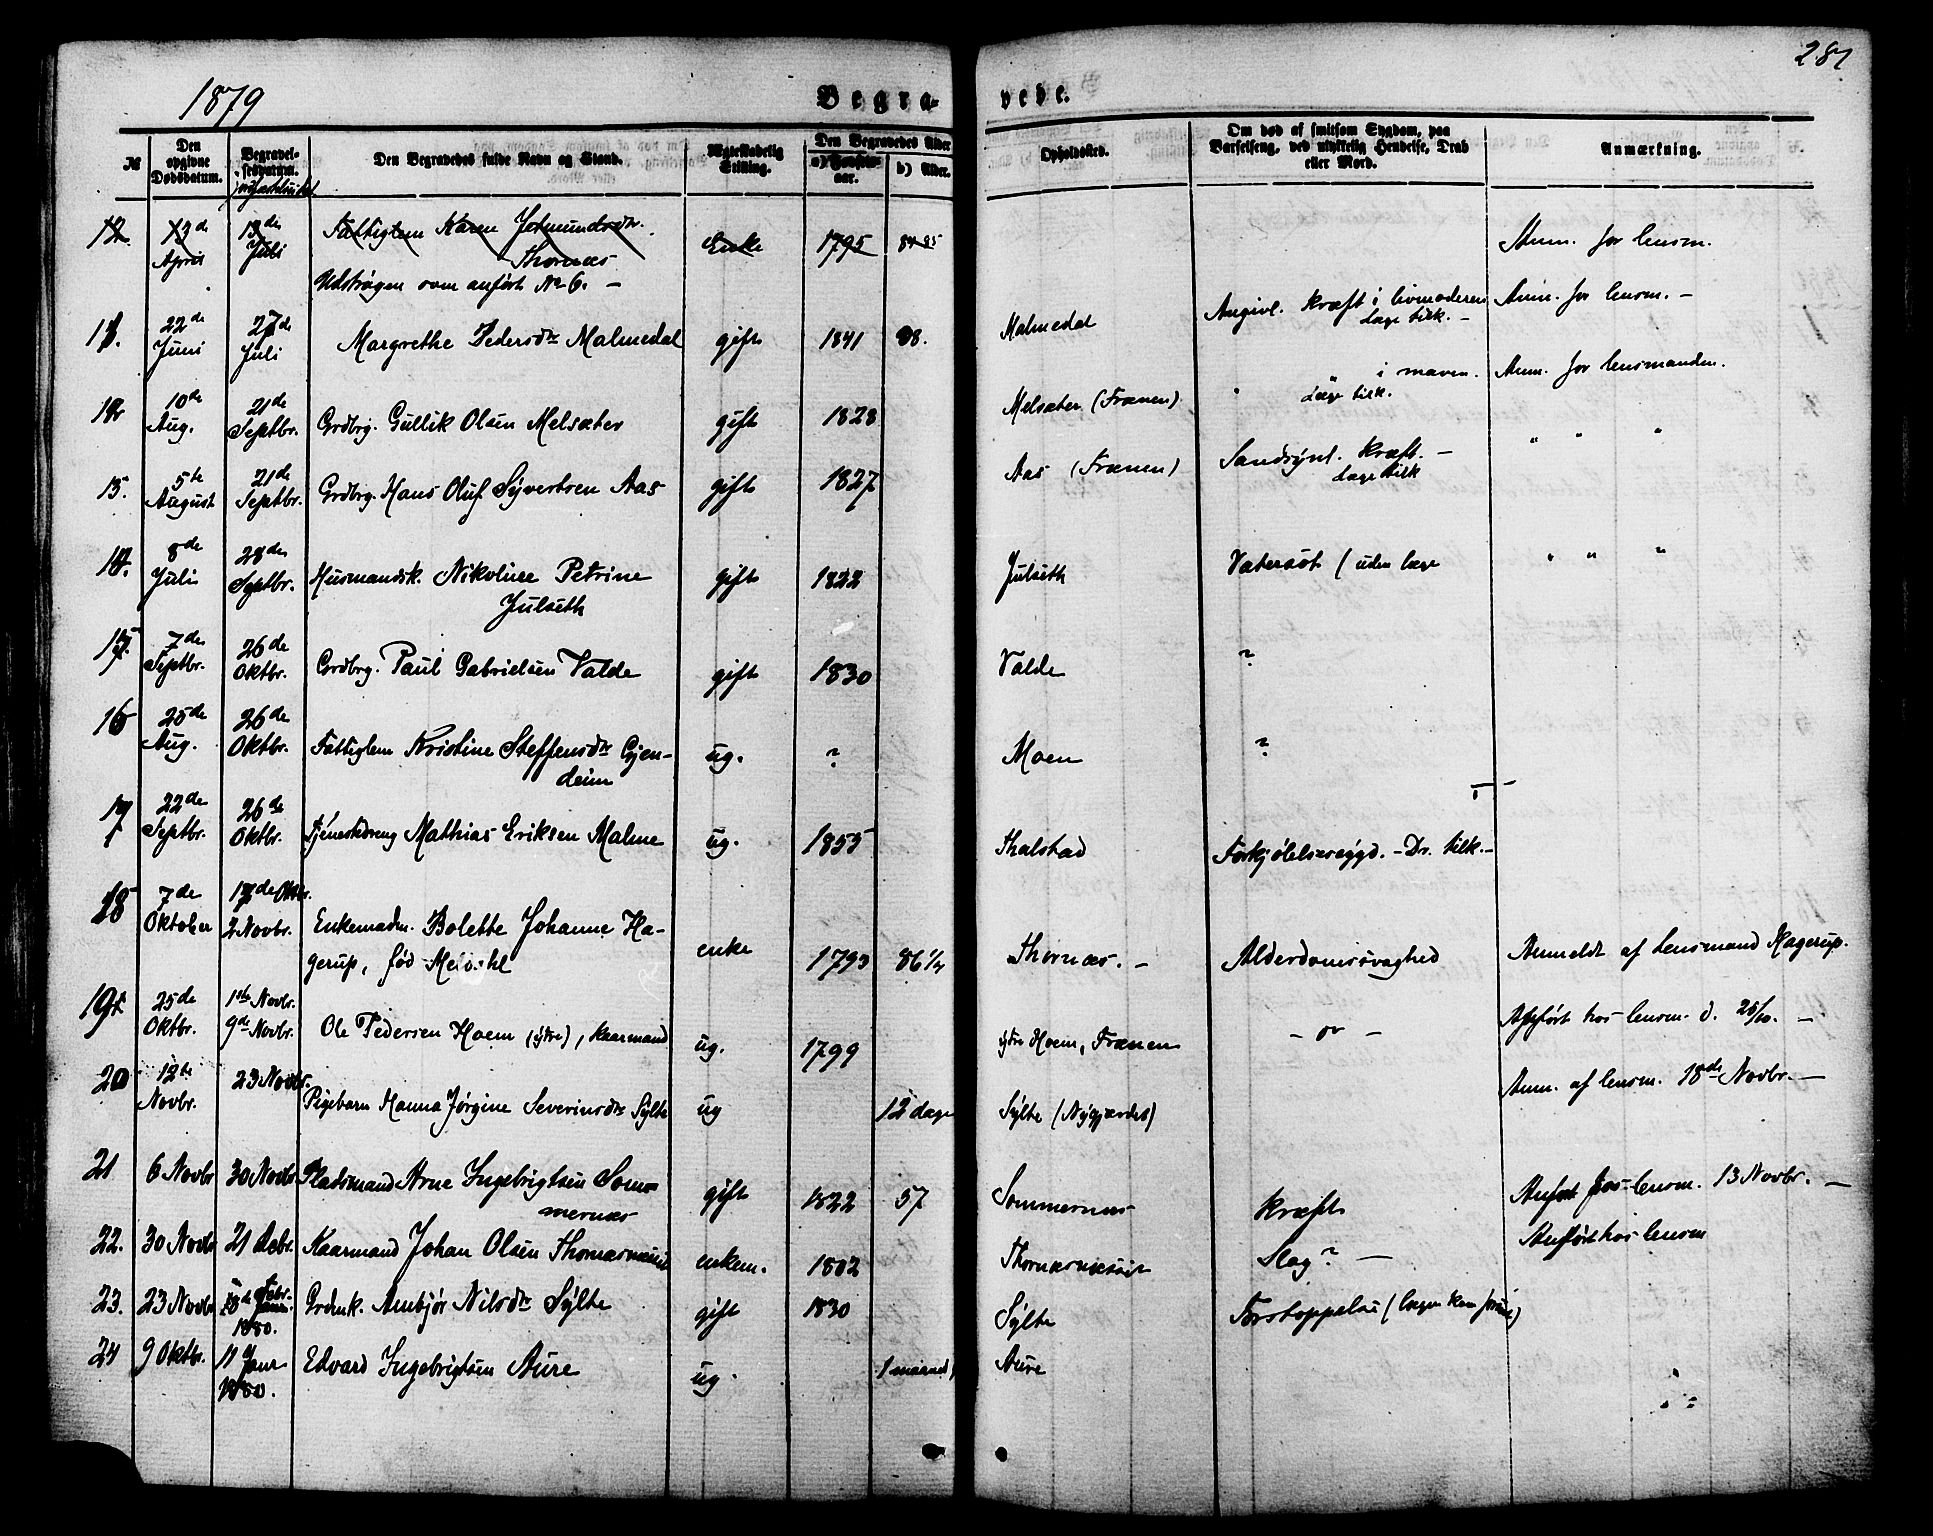 1879
Begra-
vede.
287
№
Den opgivne Dødsdatum.
Begravel-sesdatum.
Den Begravedes fulde Navn og Stand.
Ægteskabelig Stilling.
Den Begravedes Alder
aar.
b) Alder.
Opholdssted.
Om død af smitsom Sygdom, paa Barselseng, ved ulykkelig Hendelse, Drab eller Mord.
Anmærkning.
12. 13de April 13de Juli Fattiglem Karen Jetmundsdtr. Thornæs Enke 1795 84-85 Anm. for lensm.
Udstrøgen som anført No 6. -
22de Juni 27de Juli Margrethe Pedersdtr Malmedal gift 1841 38. Malmedal Angivl. kræft i livmoderen læge tilk. - Anm. for lensm. -
10de Aug. 21de Septbr. Grdbrg. Gullik Olsen Melsæter gift 1828 Melsæter (Frænen) " " i maven. læge tilk. Anm. for lensmanden.
13. 5te August 21de Septbr. Grdbrg. Hans Oluf Syvertsen Aas gift 1827 Aas (Frænen) Sandsynl. kræft. - læge tilk " " "
8de Juli 28de Septbr. Husmandsk. Nikoline Petrine Julseth gift 1822 Julseth Vatersot (uden læge " " "
15. 7de Septbr. 26de Oktbr. Grdbrg. Paul Gabrielsen Valde gift 1830 Valde ?
16 25de Aug. 26de Oktbr. Fattiglem Kristine Steffensdtr Gjen-
deim ug. ? Moen ?
17 22de Septbr. 26de Oktbr. Tjenestedreng Mathias Eriksen Malme ug. 1855 Thalstad Forkjølelsessygd. - Dr. tilk. -
18 7de Oktober 17de Oktbr. 2 Novbr. Enkemadm. Bolette Johanne Ha-
gerup, fød enke 1793 86 1/4 Thornæs. - Alderdomssvaghed Anmeldt af Lensmand Hagerup.
19 25de Oktbr. 1ste Novbr. 9de Novbr. Ole Pedersen Hoem (ytre), kaarmand ug. 1799 ytre Hoem, Frænen - " - Anført hos lensm. d. 28/10. -
20 12te Novbr. 23 Novbr. Pigebarn Hanna Jørgine Severinsdtr Sylte ug 12 dage Sylte (Nygjærdet) Anm. af lensm. 18de Novbr. -
21 6 Novbr 30 Novbr Pladsmand Arne Ingebrigtsen Som-
mernæs gift 1822 57 Sommernæs kræft Anført hos lensm. 13 Novbr. -
22. 30 Novb 21 Debr. Kaarmand Johan Olsen enkem. 1802 Slag? - Anført hos lensm
23. 23 Novbr Febr. 1880. Grdmk. Anbjør Nilsdtr Sylte gift 1830 Sylte Forstoppelse (lægen kom
24 9 Oktbr. 11 Janr 1880. Edvard Ingebrigtsen Aure ug. 1 maaned Aure